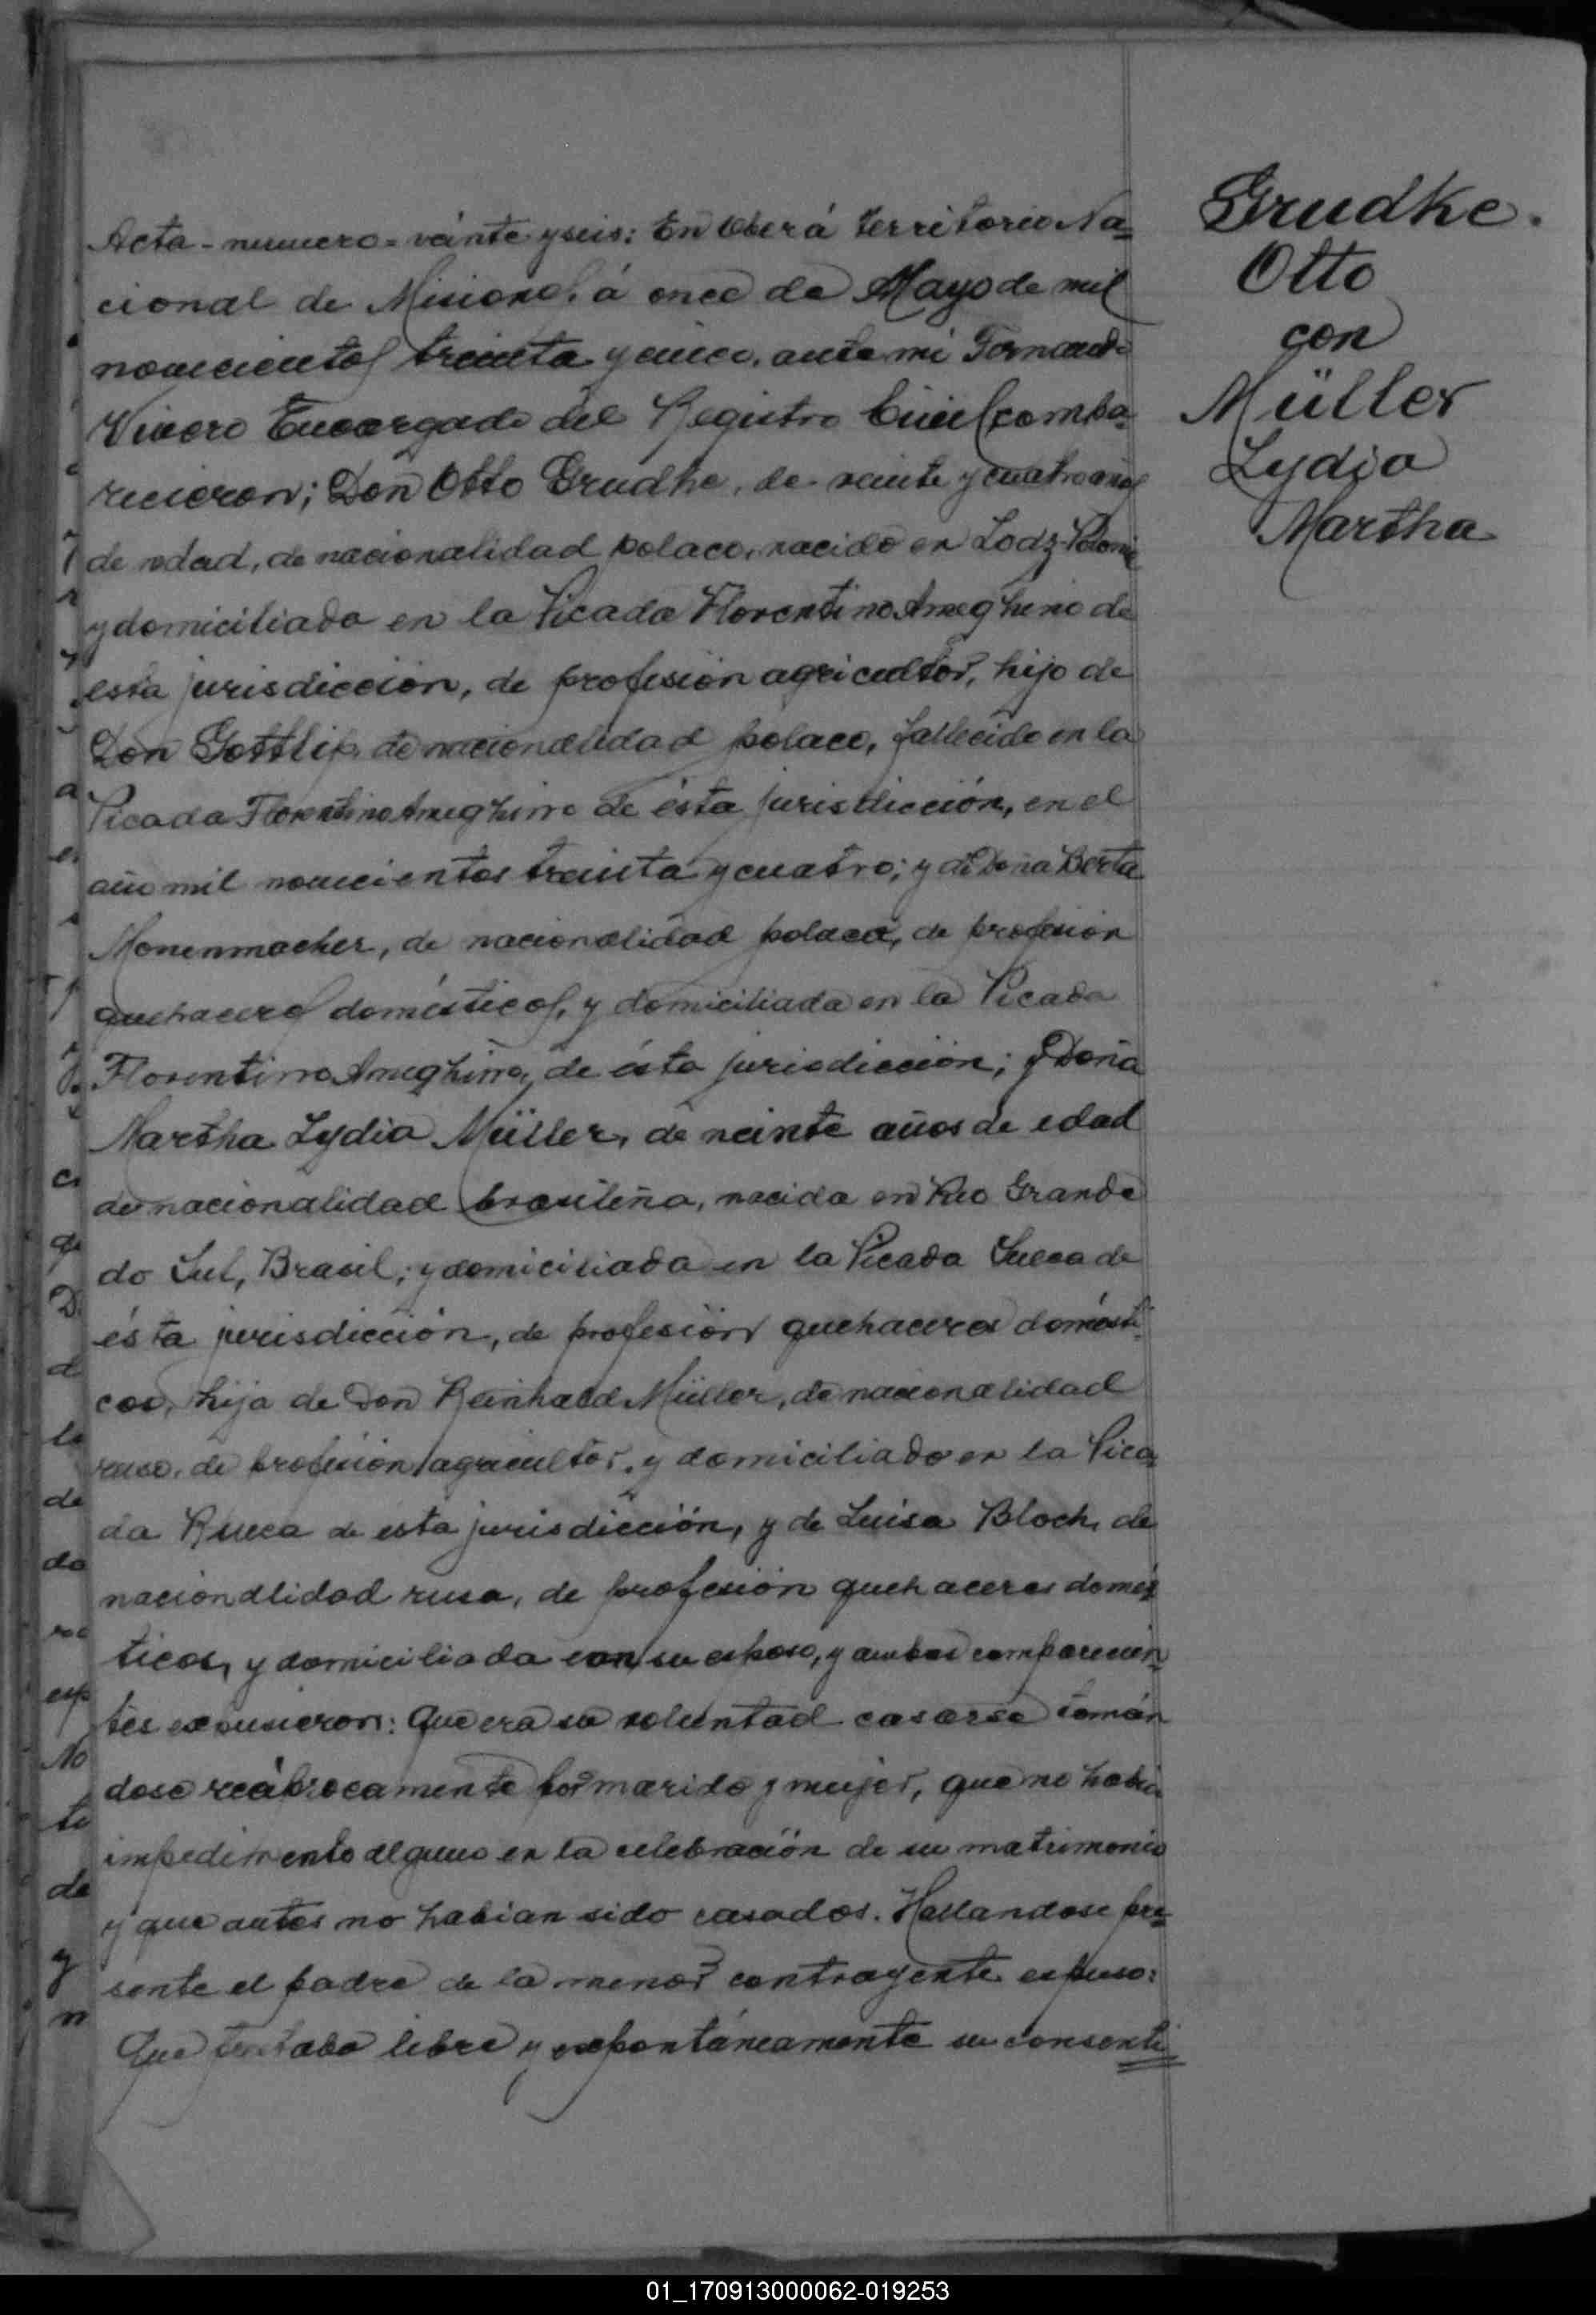 Acta - numero = veinte y seis: En Oberá Territorio Na=
cional de Misiones, á once de Mayo de mil
novecientos treinta y cinco, ante mi Fernando
Vivero Encargado del Registro Civil compa-
recieron; Don Otto Grudke, de veinte y cuatro años
de edad, de nacionalidad polaco, nacido en Lodz-Polonia
y domiciliado en la Picada Florentino Ameghino de
esta jurisdicción, de profesión agricultor, hijo de
Don Gottlip, de nacionalidad polaco, fallecido en la
Picada Florentino Ameghino de ésta jurisdicción, en el
año mil novecientos treinta y cuatro; y de Doña Berta
Monenmacher, de nacionalidad polaca, de profesión
quehaceres domésticos, y domiciliada en la Picada
Florentino Ameghino, de ésta jurisdicción; y Doña
Martha Lydia Müller, de veinte años de edad
de nacionalidad brasileña, nacida en Rio Grande
do Sul, Brasil; y domiciliada en la Picada Sueca de
ésta jurisdicción, de profesión quehaceres domésti-
cos, hija de Don Reinhald Müller, de nacionalidad
ruso, de profesión agricultor, y domiciliado en la Pica-
da Rueca de ésta jurisdicción, y de Luisa Bloch, de
nacionalidad rusa, de profesión quehaceres domés-
ticos, y domiciliada con su esposo, y ambos comparecien-
tes expusieron: Que era su voluntad casarse tomán
dose recíprocamente por marido y mujer, que no habia
impedimento alguno en la celebración de su matrimonio
y que antes no habian sido casados. Hallandose pre=
sente el padre de la menor contrayente expuso:
Que prestaba libre y expontáneamente su consenti
Grudke.
Otto
con
Müller
Lydia
Martha
01_170913000062-019253